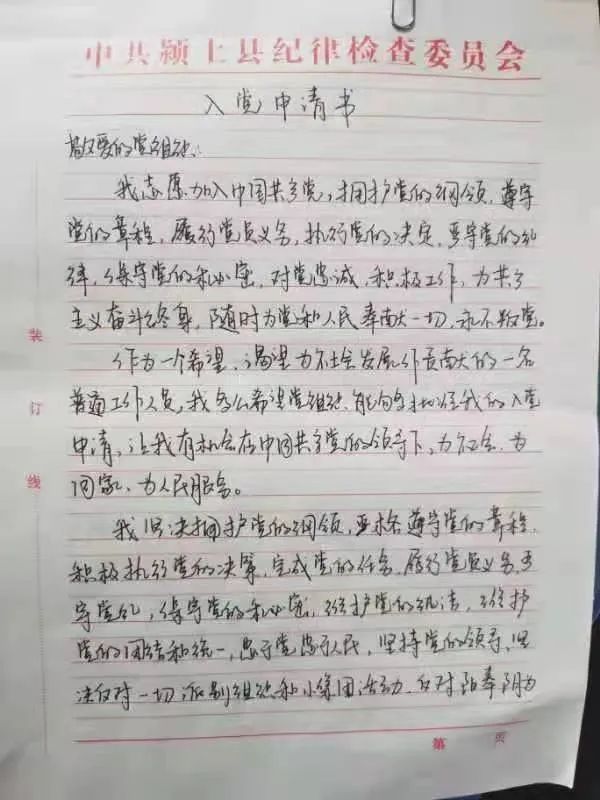 中共颍上县纪律检查委员会
入党申请书
敬爱的党组织：
我志愿加入中国共产党，拥护党的纲领，遵守
党的章程，履行党员义务，执行党的决定，严守党的纪
律，保守党的秘密，对党忠诚，积极工作，为共产
主义奋斗终身，随时为党和人民奉献一切，永不叛党。
作为一个希望、渴望为社会发展作贡献的一名
普通工作人员，我多么希望党组织能够接我的入党
申请，让我有机会在中国共产党的领导下，为社会、为
国家、为人民服务。
我坚决拥护党的纲领，严格遵守党的章程，
积极执行党的决策，完成党的任务，履行党员义务，严
守党纪，保守党的秘密，维护党的执法，维护
党的团结和统一，忠于党忠于人民，坚持党的领导，坚
决反对一切派别组织和小集团活动，反对阳奉阴为
装
订
线
第 页